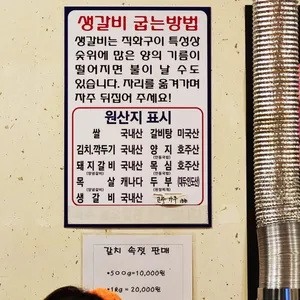 생갈비 굽는방법
생갈비는 직화구이 특성상
숯위에 많은 양의 기름이
떨어지면 불이 날 수도
있습니다. 자리를 옮겨가며
자주 뒤집어 주세요!
원산지 표시
쌀 국내산 갈비탕 미국산
김치,깍두기 국내산 양지 호주산
돼지갈비 국내산 목심 호주산
목살 캐나다 두부
생갈비 국내산
갈치 속젓 판매
*500g=10,000원
*1kg = 20,000원